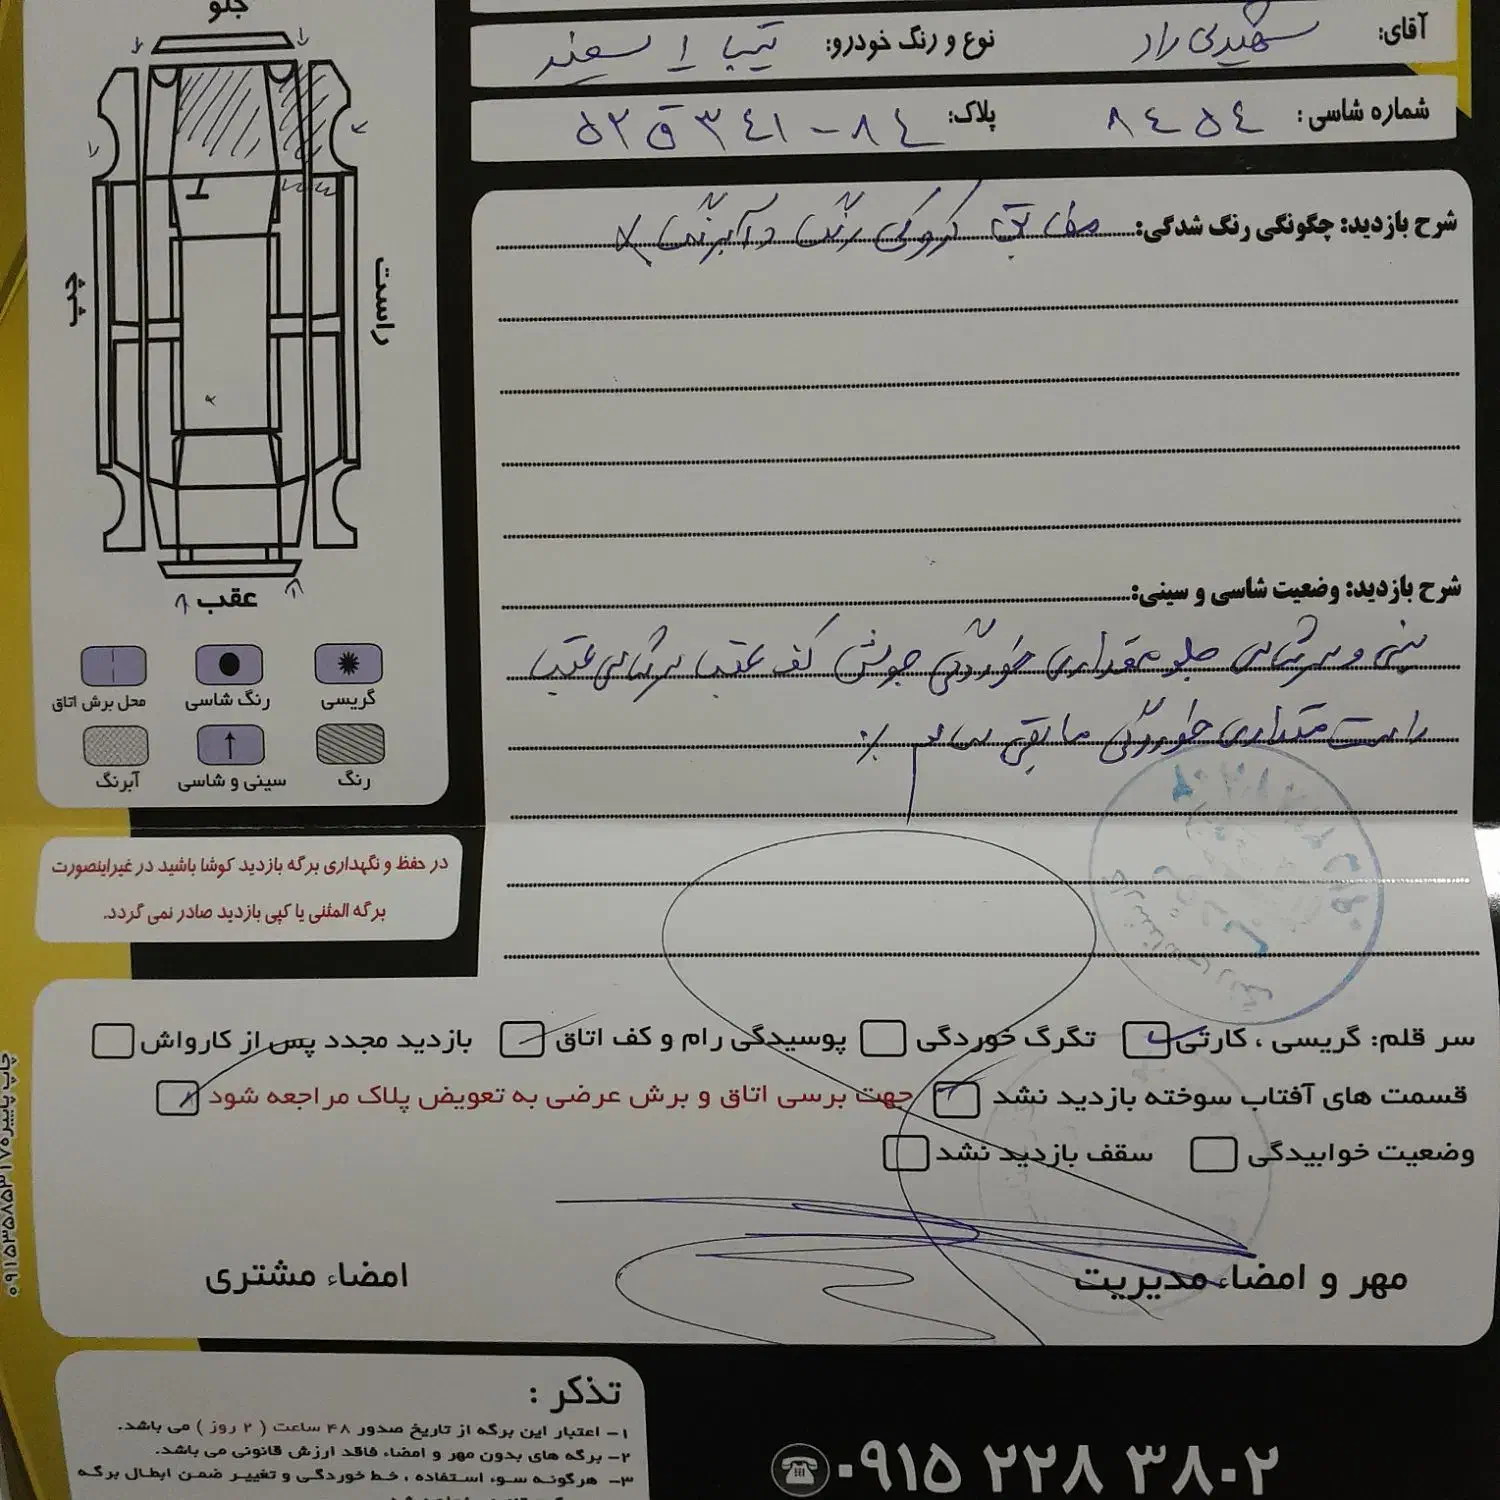 جلو
آقای: شهیدی راد
نوع و رنگ خودرو: تیبا ۱ سفید
شماره شاسی: ۸۴۵۴
پلاک: ۵۲ ق ۳۴۱ - ۸۴
چپ
راست
عقب
گریسی
رنگ شاسی
محل برش اتاق
رنگ
سینی و شاسی
آبرنگ
شرح بازدید: چگونگی رنگ شدگی: مطابق کروکی رنگ و آبرنگ
شرح بازدید: وضعیت شاسی و سینی:
سینی و سرشاسی جلو مقداری خوردگی جوش کف عقب سرشاسی عقب
راست مقداری خوردگی مابقی سالم
در حفظ و نگهداری برگه بازدید کوشا باشید در غیراینصورت
برگه المثنی یا کپی بازدید صادر نمی گردد.
سر قلم: گریسی ، کارتی
تگرگ خوردگی
پوسیدگی رام و کف اتاق
بازدید مجدد پس از کارواش
قسمت های آفتاب سوخته بازدید نشد
جهت برسی اتاق و برش عرضی به تعویض پلاک مراجعه شود
وضعیت خوابیدگی
سقف بازدید نشد
مهر و امضاء مدیریت
امضاء مشتری
تذکر :
۱- اعتبار این برگه از تاریخ صدور ۴۸ ساعت ( ۲ روز ) می باشد.
۲- برگه های بدون مهر و امضاء فاقد ارزش قانونی می باشد.
۳- هرگونه سوء استفاده ، خط خوردگی و تغییر ضمن ابطال برگه
۰۹۱۵ ۲۲۸ ۳۸۰۲